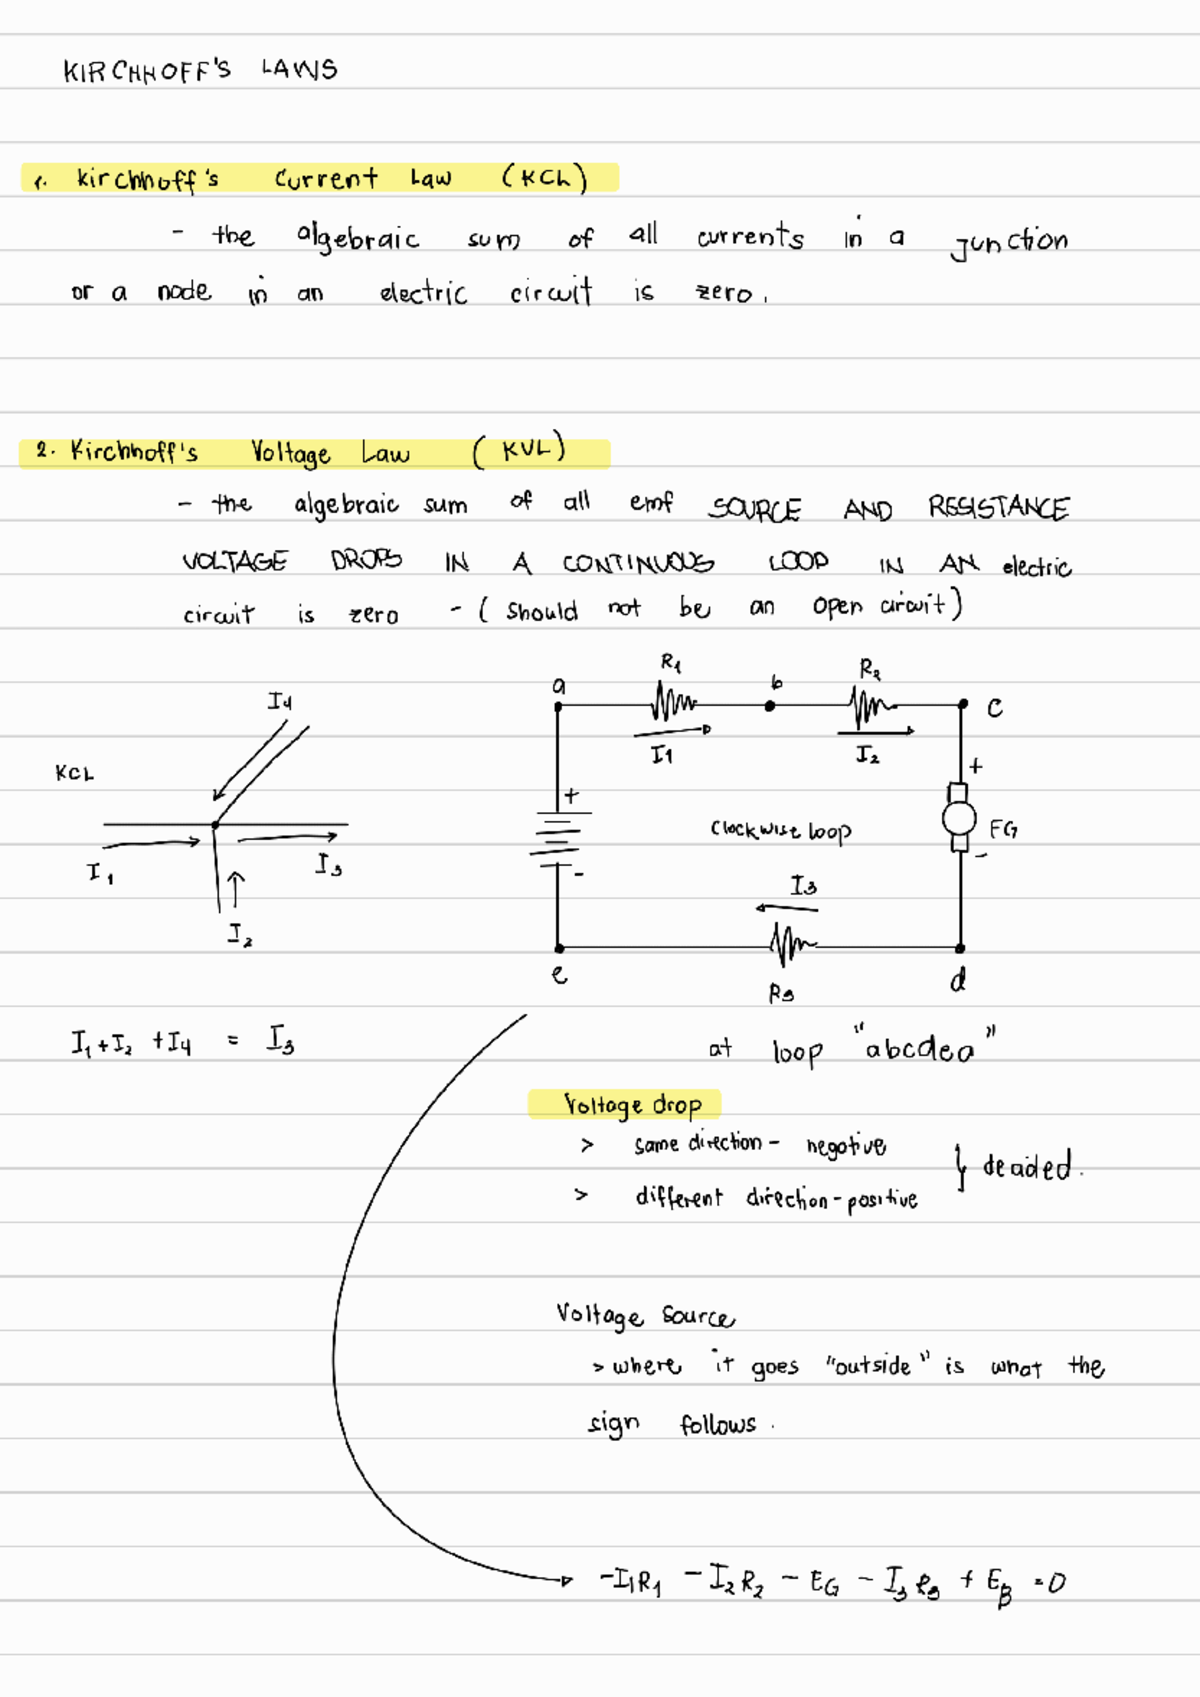 KIRCHHOFF'S LAWS
1. Kirchhoff's Current Law (KCL)
- the algebraic sum of all currents in a junction
or a node in an electric circuit is zero.
2. Kirchhoff's Voltage Law (KVL)
- the algebraic sum of all emf SOURCE AND RESISTANCE
VOLTAGE DROPS IN A CONTINUOUS LOOP IN AN electric
circuit is zero - (should not be an open circuit)
KCL
I4
I1
I3
I2
I1 + I2 + I4 = I3
a
R1
b
R2
c
I1
I2
+
+
Clockwise loop
EG
-
-
I3
e
R3
d
at loop "abcdea"
Voltage drop
> same direction - negative
> different direction - positive
} decided.
Voltage source
> where it goes "outside" is what the
sign follows.
-I1R1 - I2R2 - EG - I3R3 + EB = 0